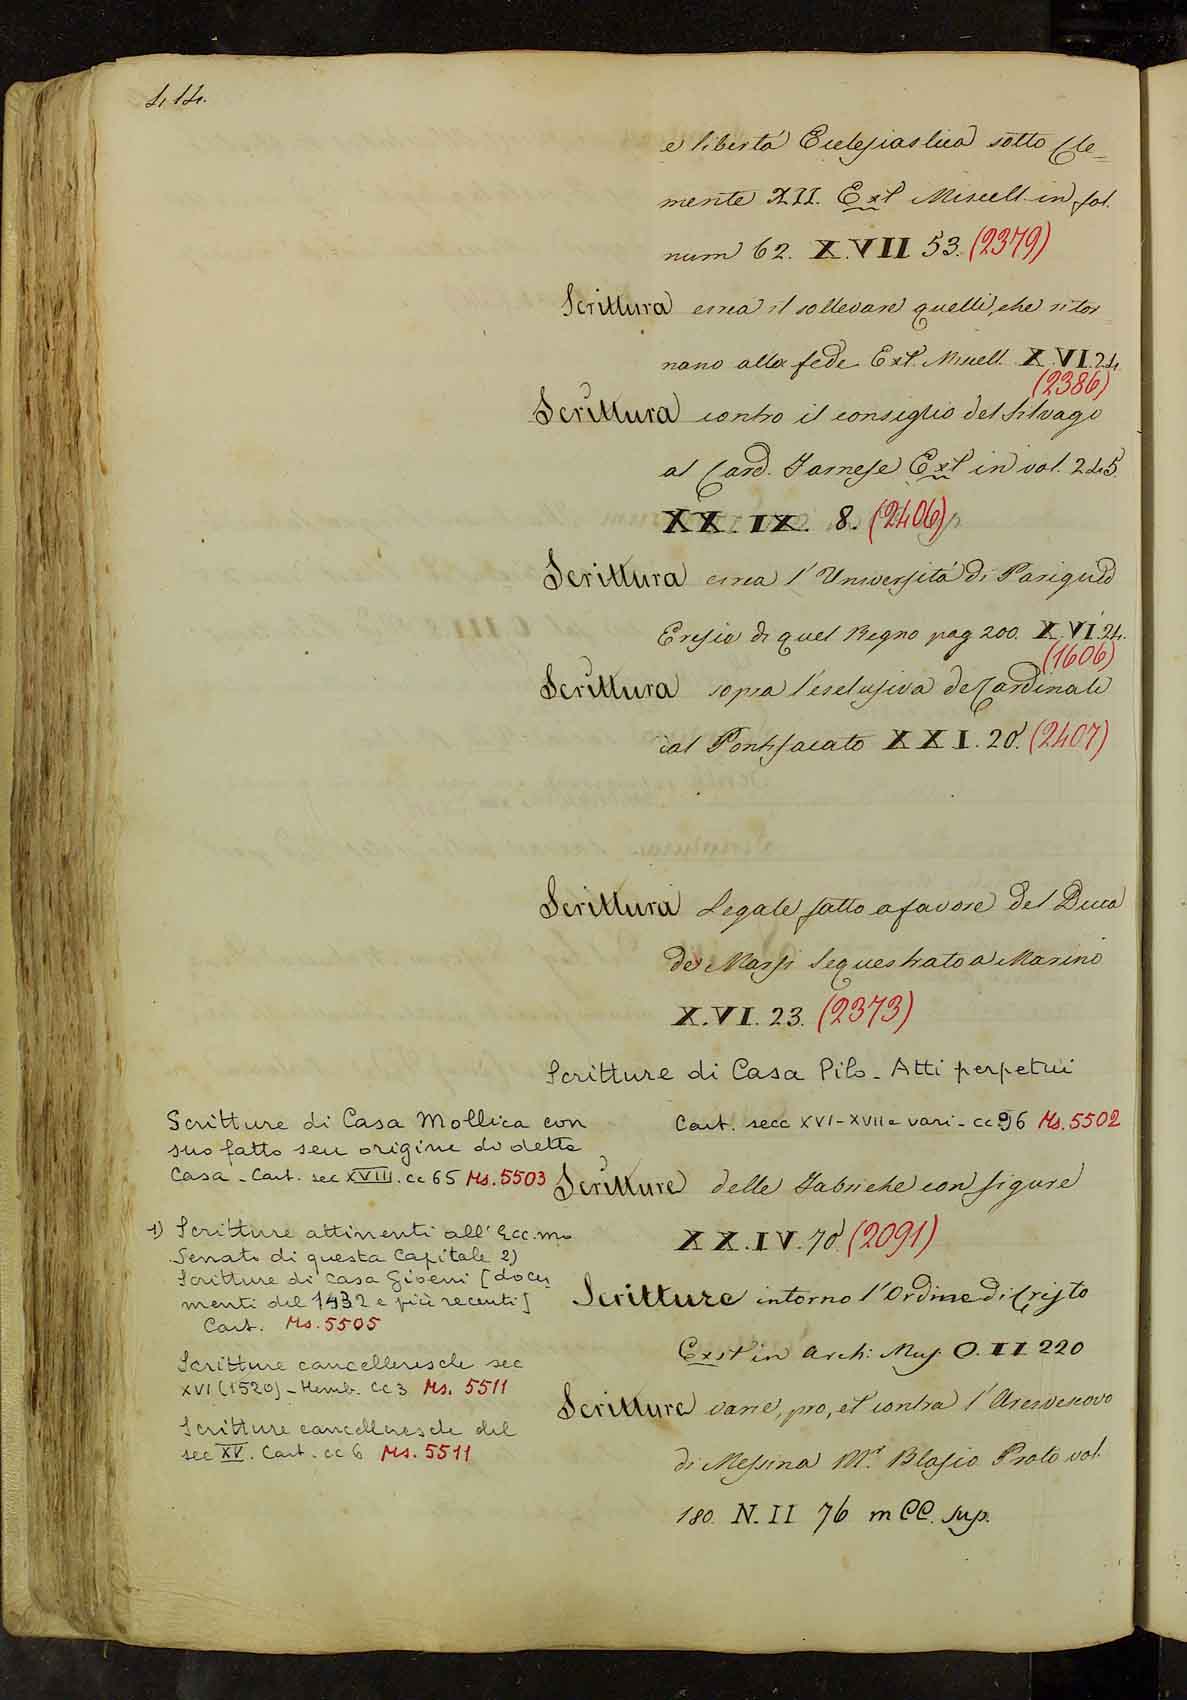 414.
e libertá Eclesiastica sotto Cle=
mente XII. Ext Miscell. in fol.
num 62. X.VII 53. (2379)
Scrittura circa il sollevare quelli, che ritor
nano alla fede Ext. Miscell. X.VI.24.
(2386)
Scrittura contro il consiglio del Silvago
al Card. Farnese Ext in vol. 245.
XX.IX. 8. (2406)
Scrittura circa l'Universitá di Parigi ed
Eresie di quel Regno pag 200. X.VI.24.
(1606)
Scrittura sopra l'esclusiva de Cardinali
al Pontificato XXI.20. (2407)
Scrittura Legale fatta a favore del Duca
de Marsi sequestrato a Marino
X.VI.23. (2373)
Scritture di Casa Pilo - Atti perpetui
Cart. secc XVI-XVII e vari - cc 96 Ms. 5502
Scritture di Casa Mollica con
suo fatto seu origine di detta
Casa - Cart. sec XVIII. cc 65 Ms. 5503
Scritture delle Fabriche con figure
XX.IV.70 (2091)
1) Scritture attinenti all'Ecc.mo
Senato di questa Capitale 2)
Scritture di casa Gioeni [docu
menti del 1432 e più recenti]
Cart. Ms. 5505
Scritture intorno l'Ordine di Cristo
Exst in Arch: Mus. O.II 220
Scritture cancelleresche sec
XVI (1520) - Memb. cc 3 Ms. 5511
Scritture varie, pro, et contra l'Arcivescovo
di Messina Mr. Blasio Proto vol.
180. N.II 76 m CC. sup.
Scritture cancelleresche del
sec XV. Cart. cc 6 Ms. 5511